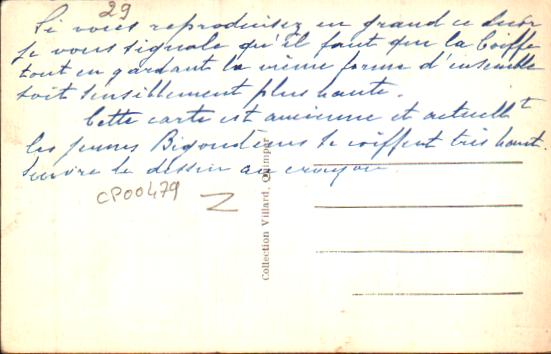 29
Si vous reproduisez en grand ce dessin
je vous signale qu'il faut que la Coiffe
tout en gardant la même forme d'ensemble
soit sensiblement plus haute.
Cette carte est ancienne et actuellt
les jeunes Bigoudènes se coiffent très haut.
Suivre le dessin au crayon
CP00479
Collection Villard, Quimper